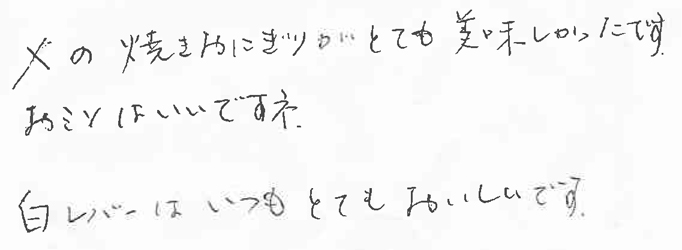 〆の焼きおにぎりがとても美味しかったです
おミソはいいですネ.
白レバーはいつもとてもおいしいです.